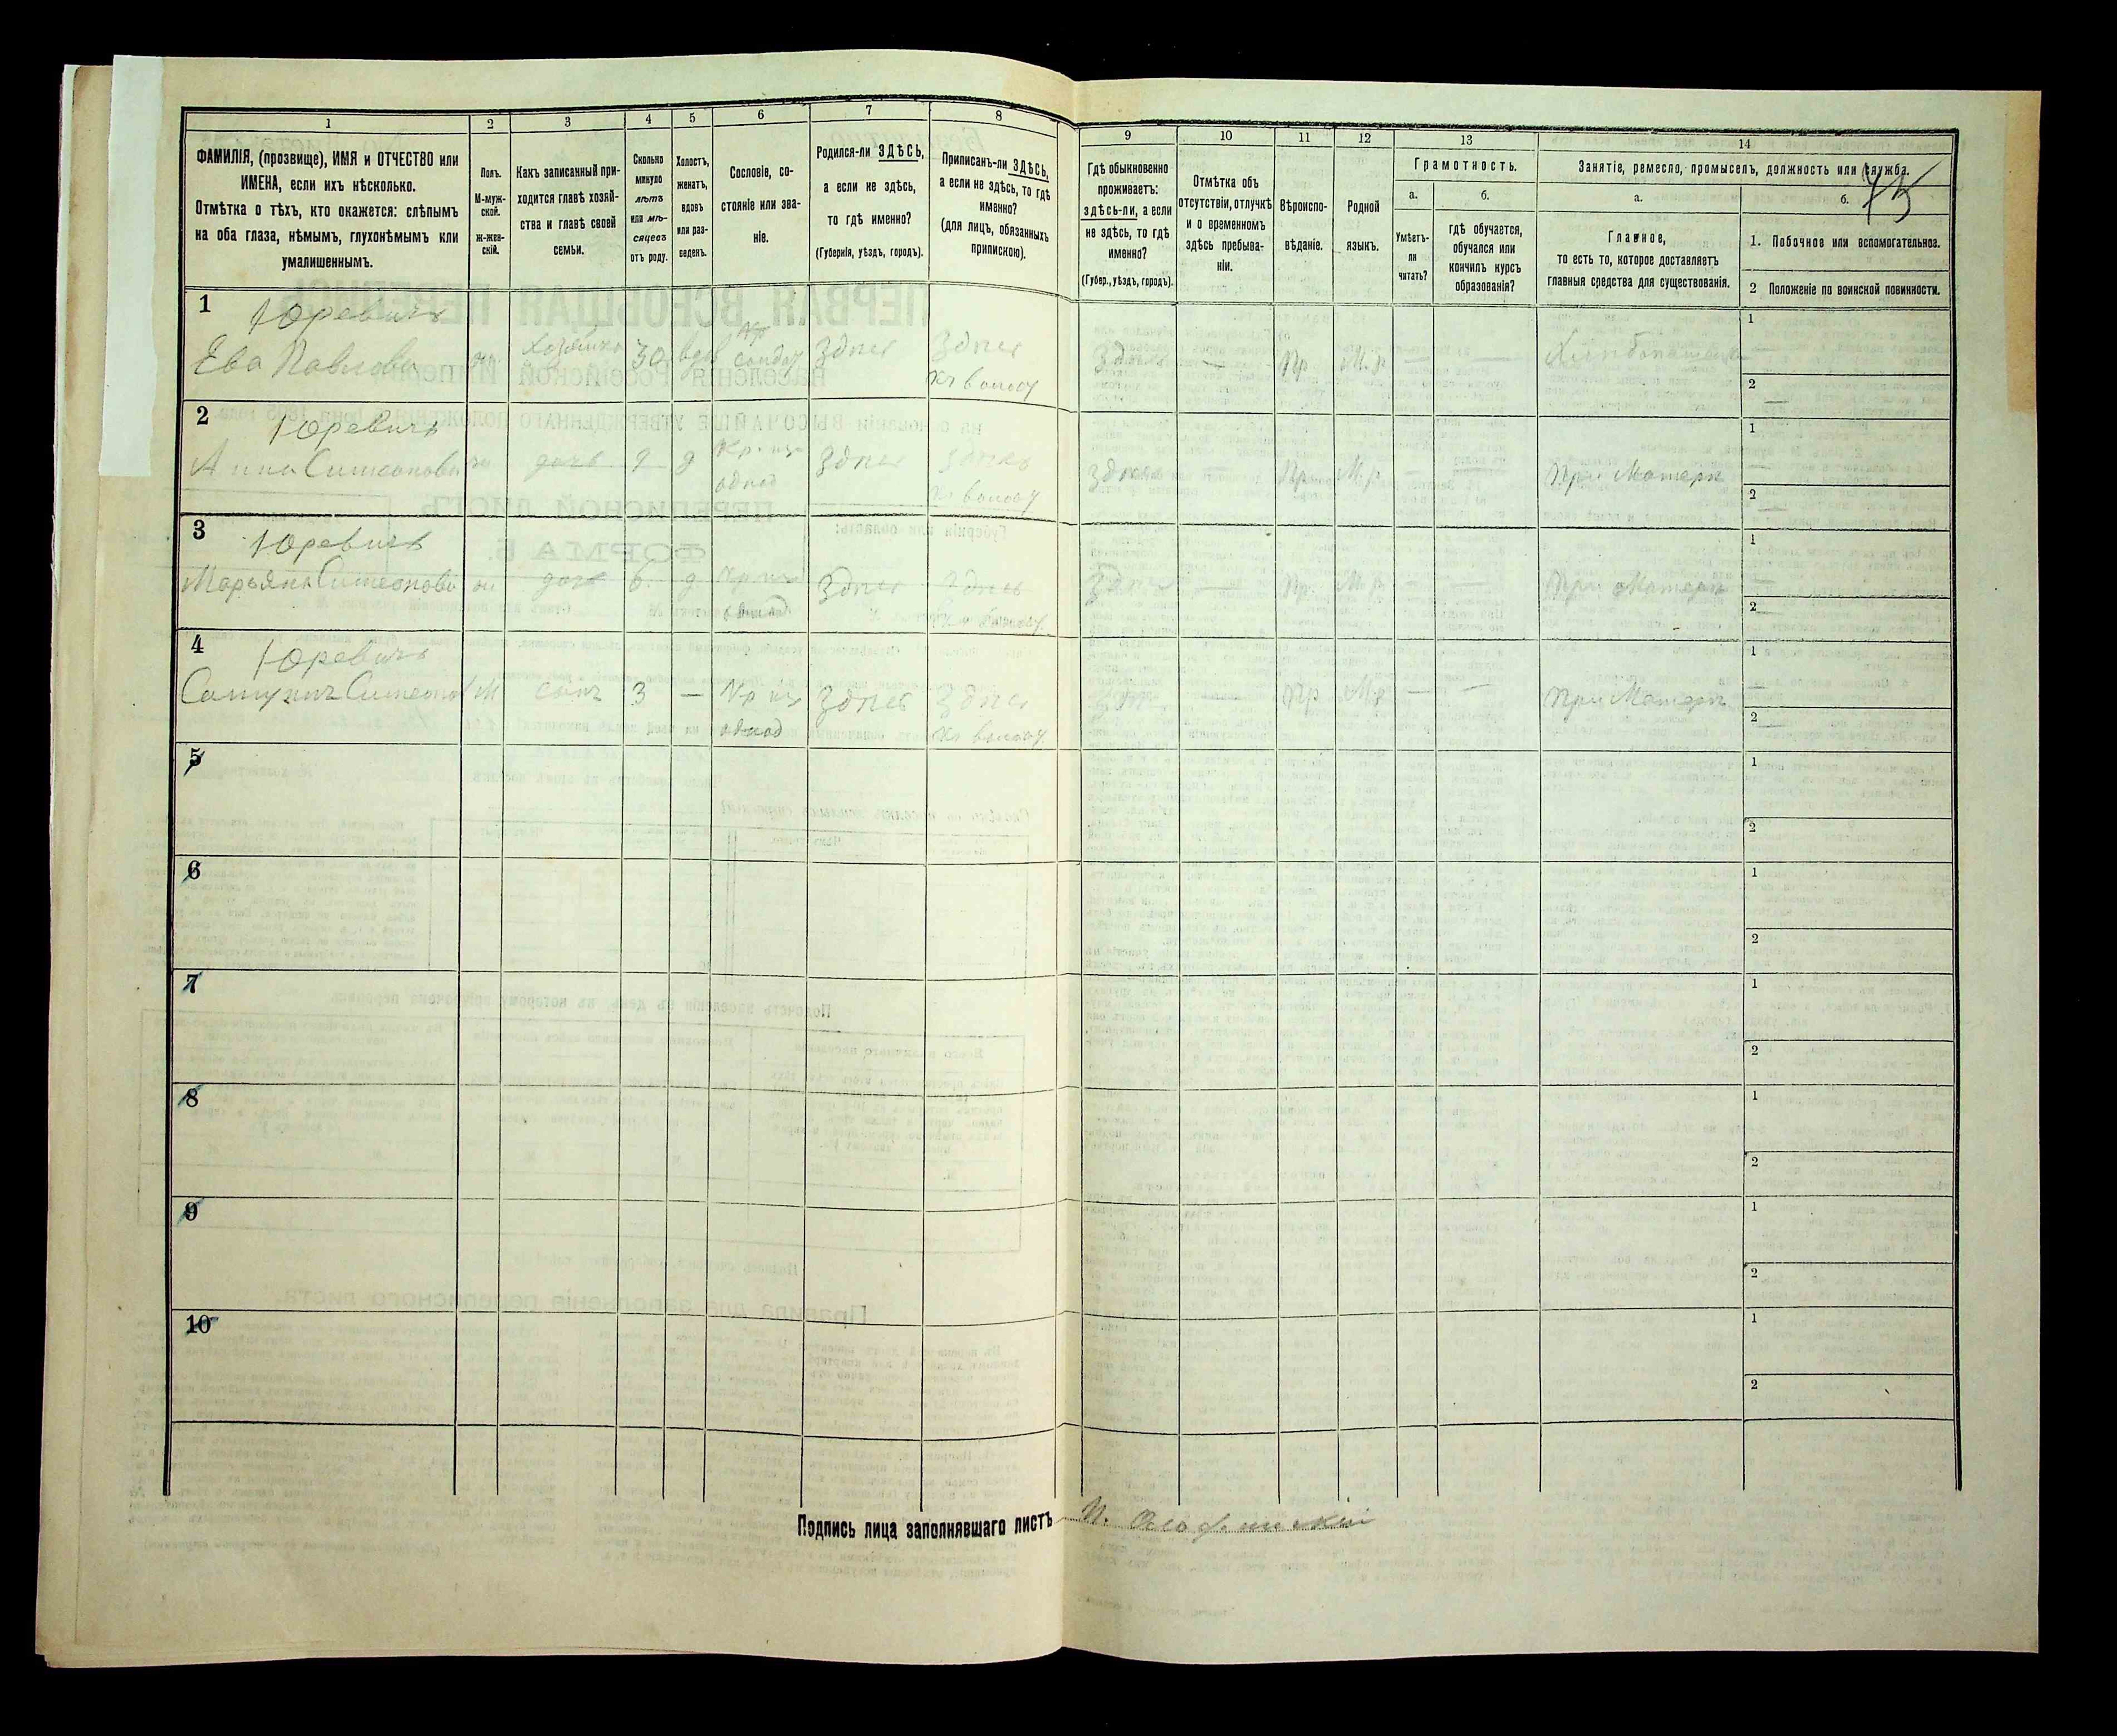 1 2 3 4 5 6 7 8 9 10 11 12 13 14
ФАМИЛІЯ, (прозвище), ИМЯ и ОТЧЕСТВО или
ИМЕНА, если ихъ нѣсколько.
Отмѣтка о тѣхъ, кто окажется: слѣпымъ
на оба глаза, нѣмымъ, глухонѣмымъ или
умалишеннымъ.
Полъ.
М-муж-
ской.
ж-жен-
скій.
Какъ записанный при-
ходится главѣ хозяй-
ства и главѣ своей
семьи.
Сколько
минуло
лѣтъ
или мѣ-
сяцевъ
отъ роду.
Холостъ,
женатъ,
вдовъ
или раз-
веденъ.
Сословіе, со-
стояніе или зва-
ніе.
Родился-ли ЗДѢСЬ,
а если не здѣсь,
то гдѣ именно?
(Губернія, уѣздъ, городъ).
Приписанъ-ли ЗДѢСЬ,
а если не здѣсь, то гдѣ
именно?
(для лицъ, обязанныхъ
припискою).
Гдѣ обыкновенно
проживаетъ:
здѣсь-ли, а если
не здѣсь, то гдѣ
именно?
(Губер., уѣздъ, городъ).
Отмѣтка объ
отсутствіи, отлучкѣ
и о временномъ
здѣсь пребыва-
ніи.
Вѣроиспо-
вѣданіе.
Родной
языкъ.
Грамотность.
а.
Умѣетъ-
ли
читать?
б.
гдѣ обучается,
обучался или
кончилъ курсъ
образованія?
Занятіе, ремесло, промыселъ, должность или служба.
а.
Главное,
то есть то, которое доставляетъ
главныя средства для существованія.
б.
1. Побочное или вспомогательное.
2 Положеніе по воинской повинности.
75
1 Юревичъ
Ева Павлова
хозяйка 30 вдов
Здѣсь Здѣсь
Здѣсь — Пр М.р — —
1
2 —
2 Юревичъ
Анна Симеонова
дочь 9 д Кр. изъ
однод
Здѣсь Здѣсь
Здѣсь — Пр М.р — — При Матери
1 —
2 —
3 Юревичъ
Марьяна Симеонова
дочь 6 д Кр изъ
однод
Здѣсь Здѣсь
Здѣсь — Пр. М.р — — При Матери
1 —
2 —
4 Юревичъ
М сынъ 3 — Кр изъ
однод
Здѣсь Здѣсь
Здѣсь — Пр М.р — — При Матери
1 —
2 —
5 1
2
6 1
2
7 1
2
8 1
2
9 1
2
10 1
2
Подпись лица заполнявшаго листъ